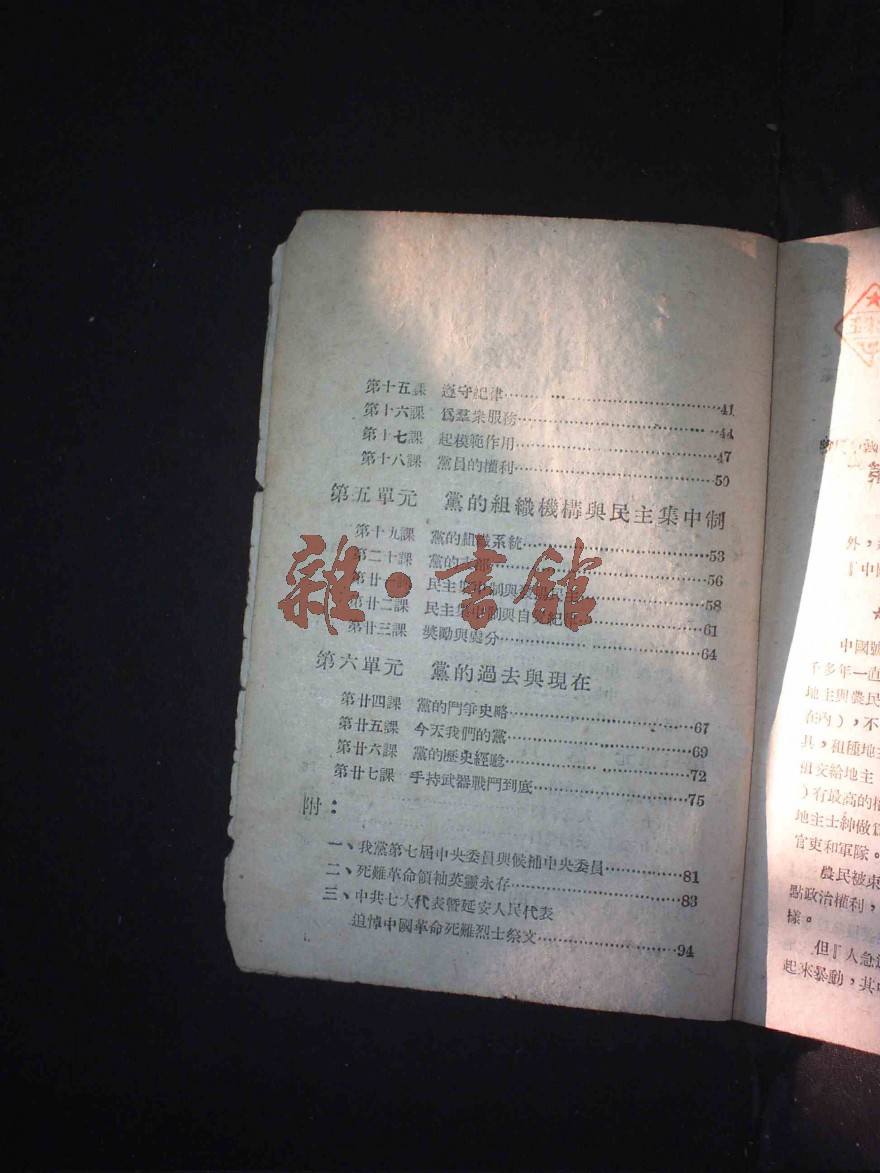 第十五課 遵守紀律……… … ………………………41
第十六課 爲羣衆服務……………………… …44
第十七課 起模範作用………………………………47
第十八課 黨員的權利………………………………50
第五單元 黨的組織機構與民主集中制
第十九課 黨的組織系統……………………………53
第二十課 黨的支部…………………………………56
第廿一課 民主集中制與 58
第廿二課 民主集中制與自覺紀律 61
第廿三課 獎勵與處分…………… ………………64
第六單元 黨的過去與現在
第廿四課 黨的鬥爭史略……………………………67
第廿五課 今天我們的黨……………………………69
第廿六課 黨的歷史經驗…………… ……………72
第廿七課 手持武器戰鬥到底………………………75
附:
一、我黨第七屆中央委員與候補中央委員…………81
二、死難革命領袖英靈永存…………………………83
三、中共七大代表暨延安人民代表
追悼中國革命死難烈士祭文……………………94
雜·書館
外,
『中國
中國號
千多年一直
地主與農民
在內),不
具,租種地主
租交給地主
)有最高的權
地主士紳做
官吏和軍隊。
農民被束
點政治權利,
樣。
但『人急
起來暴動,其中